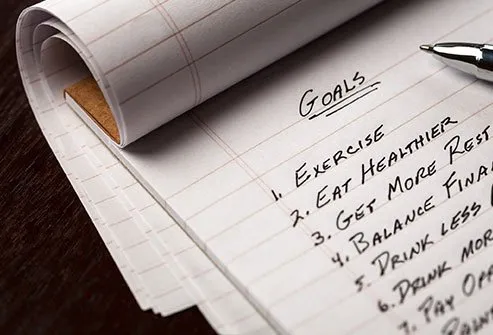 GOALS
1. EXERCISE
2. EAT HEALTHIER
3. GET MORE REST
4. BALANCE
5. DRINK LESS
6. DRINK MOR
7. PAY OFF